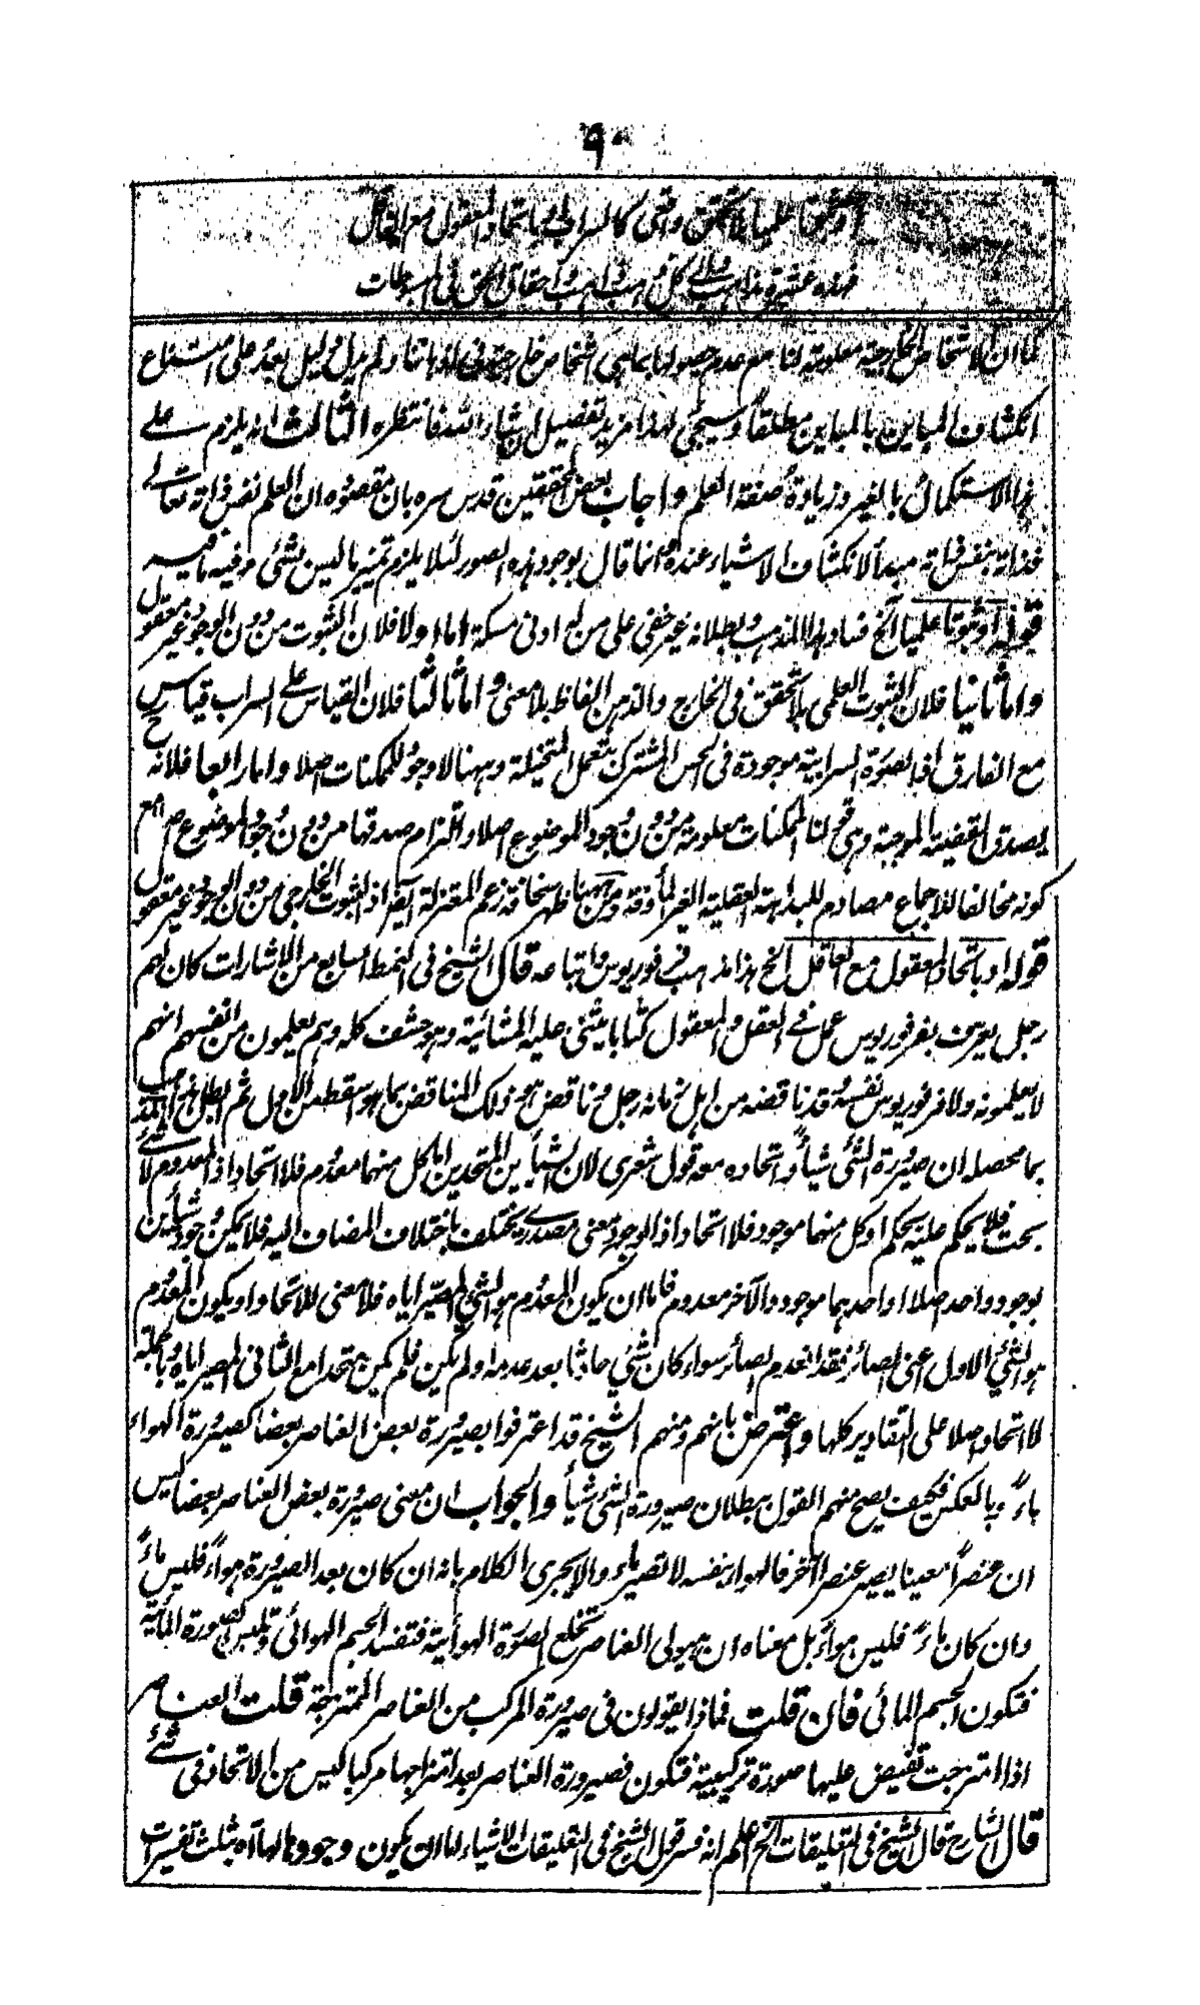 ٩٠
أو ثبوتا علميا بلا تحقق واقعي كالسراب أو باتحاد المعقول مع العاقل
فهذه عشرة مذاهب ولكل مذهب واحقاق الحق في المبسوطات
كما ان الاشخاص الخارجية معلومة لنا مع عدم حصولها بما هي اشخاص خارجية في اذهاننا ولم يدل دليل بعد على امتناع
انكشاف المباين بالمباين مطلقاً وسيجئ لهذا مزيد تفصيل ان شاء الله فانتظره الثالث انه يلزم على
هذا الاستكمال بالغير وزيادة صفة العلم واجاب بعض المحققين قدس سره بان مقصوده ان العلم نفس ذاته تعالى
فذاته بنفس ذاته مبدأ لانكشاف الاشياء عنده وانما قال بوجود هذه الصور لئلا يلزم تميز ما ليس بشئ وفيه ما فيه
قوله او ثبوتا علميا الخ فساد هذا المذهب وبطلانه غير خفي على من له ادنى مسكة اما اولا فلان الثبوت من دون الوجود غير معقول
واما ثانيا فلان الثبوت العلمي بلا تحقق في الخارج والذهن الفاظ بلا معنى واما ثالثا فلان القياس على السراب قياس
مع الفارق اذ الصورة السرابية موجودة في الحس المشترك بتعمل المتخيلة وههنا لا وجود للممكنات اصلا واما رابعا فلانه ح
يصدق القضية الموجبة وهي قولنا الممكنات معلومة من دون وجود الموضوع اصلا والتزام صدقها من دون وجود الموضوع مع
كونه مخالفا للاجماع مصادم للبداهة العقلية الغير المأوفة ومن ههنا ظهر سخافة زعم المعتزلة ايضا اذ الثبوت الخارجي من دون الوجود غير معقول
قوله او باتحاد المعقول مع العاقل الخ هذا مذهب فرفوريوس واتباعه قال الشيخ في النمط السابع من الاشارات كان لهم
رجل يعرف بفرفوريوس عمل في العقل والمعقول كتابا يثنى عليه المشائية وهو حشف كله وهم يعلمون من انفسهم انهم
لا يعلمونه ولا فرفوريوس نفسه وقد ناقضه من اهل زمانه رجل وناقض هو ذلك المناقض بما هو اسقط من الاول ثم ابطل هذا المذهب
بما محصله ان صيرورة الشئ شيأ واتحاده معه قول شعرى لان الشيأين المتحدين اما كل منهما معدوم فلا اتحاد اذ المعدوم لا شئ
بحت فلا يحكم عليه بحكم او كل منهما موجود فلا اتحاد اذ الوجود معنى مصدرى يختلف باختلاف المضاف اليه فلا يكون وجود شيأين
بوجود واحد اصلا او احدهما موجود والآخر معدوم فاما ان يكون المعدوم هو الشئ المصير اياه فلا معنى للاتحاد او يكون المعدوم
هو الشئ الاول اعنى الصائر فقد انعدم الصائر سواء كان شئ حادثا بعد عدمه اولم يكن فلم يكن متحدا مع الثانى المصير اياه وبالجملة
لا اتحاد اصلا على التقادير كلها واعترض بانهم ومنهم الشيخ قد اعترفوا بصيرورة بعض العناصر بعضا كصيرورة الهواء
ماءً وبالعكس فكيف يصح منهم القول ببطلان صيرورة الشئ شيأ والجواب ان معنى صيرورة بعض العناصر بعضا ليس
ان عنصراً معينا يصير عنصرا آخر فالهواء بنفسه لا تصير ماء والا يجرى الكلام بانه ان كان بعد الصيرورة هواءً فليس ماءً
وان كان ماءً فليس هواءً بل معناه ان هيولى العناصر تخلع الصورة الهوائية فتفسد الجسم الهوائى وتلبس الصورة المائية
فتكون الجسم المائى فان قلت فماذا يقولون فى صيرورة المركب من العناصر الممتزجة قلت العناصر
اذا امتزجت تفيض عليها صورة تركيبية فتكون فصيرورة العناصر بعد امتزاجها مركبا ليس من الاتحاد فى شئ
قال الشارح قال الشيخ فى التعليقات الخ اعلم انه فسر قول الشيخ فى التعليقات الاشياء اما ان يكون وجودها لها آه بثلث تفسيرات